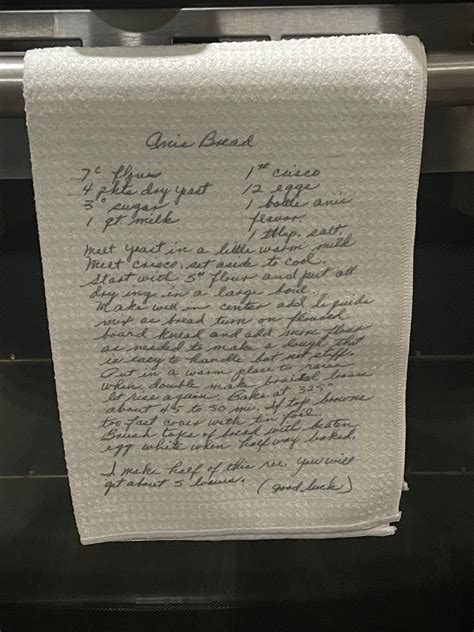 Anis Bread
7c flour
4 pkts dry yeast
3c sugar
1 qt. milk
1# crisco
12 eggs
1 bottle anis
flavor.
1 tblsp. salt
Melt yeast in a little warm milk
Melt crisco, set aside to cool.
Start with 5# flour and put all
dry ing. in a large bowl
Make well in center add liquids
mix as bread turn on floured
board knead and add more flour
as needed to make a dough that
is easy to handle but not stiff.
Put in a warm place to raise
when double make braided loaves
let rise again. Bake at 325°
about 45 to 50 mi. If top browns
too fast cover with tin foil
Brush tops of bread with beaten
egg white when half way baked.
I make half of this rec. you will
get about 5 loaves. (Good luck)